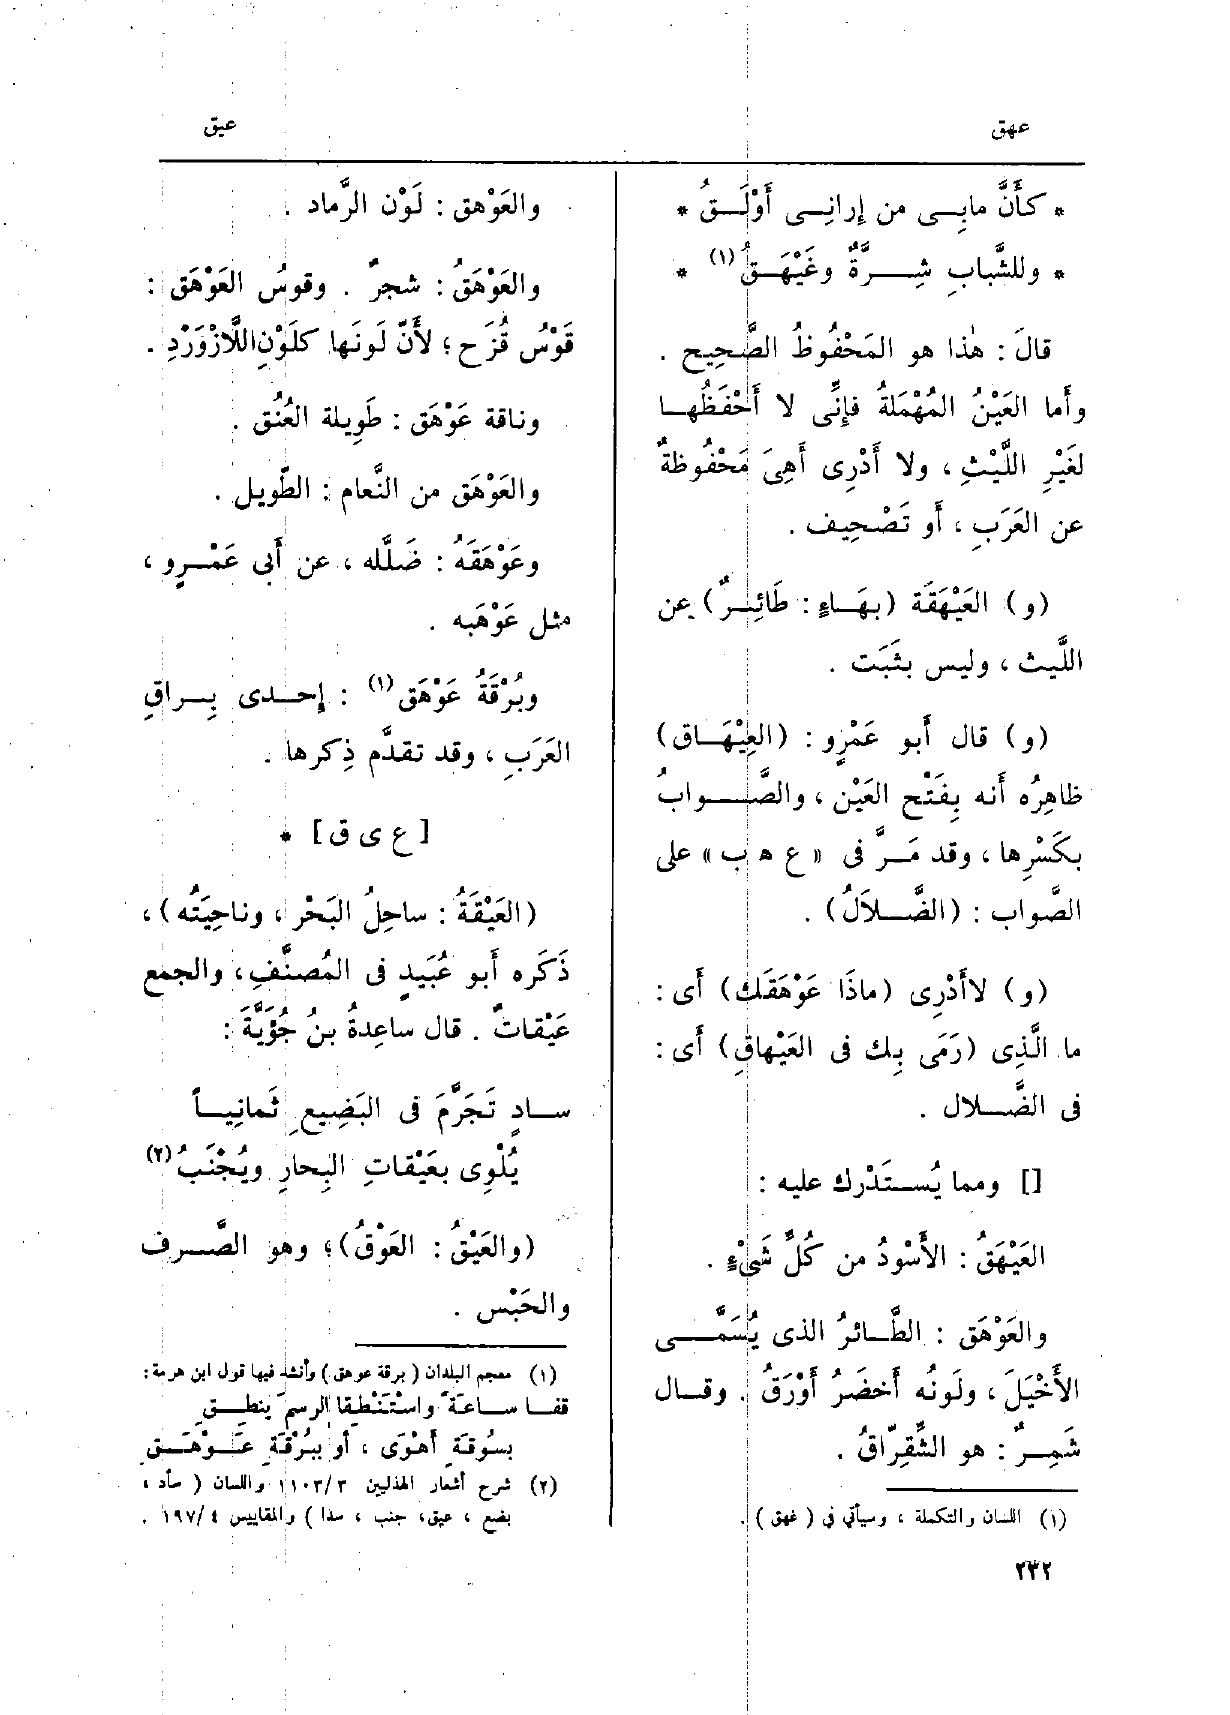 عهق
عيق
* كأَنَّ مابِى من إرانِى أَوْلَقُ *
* وللشَّبابِ شِرَّةٌ وغَيْهَقُ (١) *
قالَ : هٰذا هو المَحْفُوظُ الصَّحِيح .
وأما العَيْنُ المُهْمَلةُ فإِنِّى لا أَحْفَظُها
لغَيْرِ اللَّيْثِ ، ولا أَدْرِى أَهِىَ مَحْفُوظةٌ
عن العَرَبِ ، أَو تَصْحِيف .
(و) العَيْهَقَة (بهَاءٍ : طَائِرٌ) عن
اللَّيث ، وليس بثَبَت .
(و) قال أَبو عَمْرٍو : (العِيْهَاق)
ظاهِرُه أَنه بِفَتْح العَيْن ، والصَّوابُ
بكَسْرِها ، وقد مَرَّ فى « ع ه ب » على
الصَّواب : (الضَّلاَلُ) .
(و) لاأَدْرِى (ماذَا عَوْهَقَك) أَى :
ما الَّذِى (رَمَى بِك فى العَيْهاقِ) أَى :
فى الضَّلال .
[] ومما يُسْتَدْرك عليه :
العَيْهَقُ : الأَسْودُ من كُلِّ شَىْءٍ .
والعَوْهَق : الطَّائرُ الذى يُسَمَّى
الأَخْيَلَ ، ولَونُه أَخضَرُ أَوْرَقُ . وقال
شَمِرٌ : هو الشِّقِرّاقُ .
(١) اللسان والتكملة ، وسيأتي في ( غهق ) .
٢٣٢
والعَوْهق : لَوْن الرَّماد .
والعَوْهَقُ : شجرٌ . وقوسُ العَوْهَق :
قَوْسُ قُزَح ؛ لأَنّ لَونَها كلَوْنِ اللَّازْوَرْدِ .
وناقة عَوْهَق : طَوِيلة العُنُق .
والعَوْهَق من النَّعام : الطّويل .
وعَوْهَقَهُ : ضَلَّله ، عن أَبى عَمْرٍو ،
مثل عَوْهَبه .
وبُرْقَةُ عَوْهَق (١) : إِحدى بِراقِ
العَرَبِ ، وقد تقدَّم ذِكرها .
[ ع ى ق ] *
(العَيْقَةُ : ساحِلُ البَحْر ، وناحِيَتُه) ،
ذَكَره أَبو عُبَيدٍ فى المُصنَّفِ ، والجمع
عَيْقاتٌ . قال ساعِدةُ بنُ جُؤَيَّةَ :
سادٍ تَجَرَّمَ فى البَضِيعِ ثَمانِياً
يُلْوِى بعَيْقاتِ البِحارِ ويُجْنَبُ (٢)
(والعَيْقُ : العَوْقُ) ؛ وهو الصَّرف
والحَبْس .
(١) معجم البلدان ( برقة عوهق ) وأنشد فيها قول ابن هرمة :
قفا ساعَةً واسْتَنْطِقا الرسمَ ينطِق
بسُوقَةِ أَهْوَى ، أو ببُرْقَةِ عَوْهَقِ
(٢) شرح أشعار الهذليين ١١٠٣/٣ واللسان ( سأد ،
بضع ، عيق ، جنب ، سدا ) والمقاييس ١٩٧/٤ .